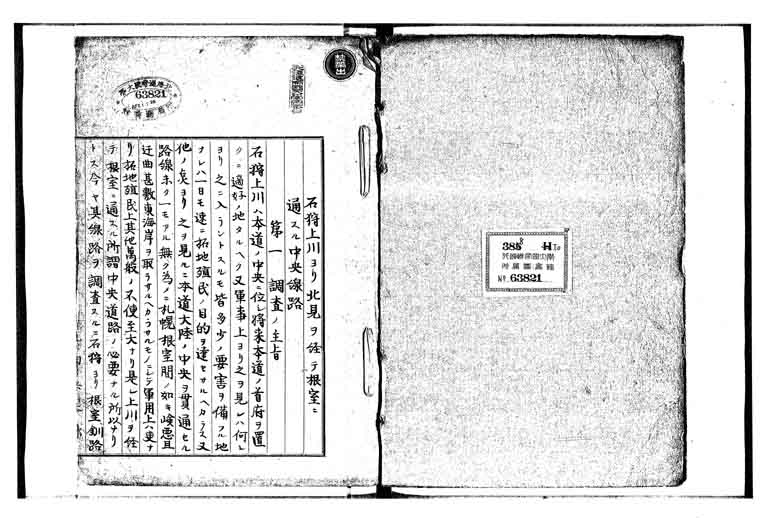 石狩上川ヨリ北見ヲ経テ根室ニ
通スル中央線路
第一 調査ノ主旨
石狩上川ハ本道ノ中央ニ位シ将来本道ノ首府ヲ置
クニ適好ノ地タルヘク又軍事上ヨリ之ヲ見レハ何レ
ヨリ之ニ入ラントスルモ皆多少ノ要害ヲ備フル地
ナレハ一日モ速ニ拓地殖民ノ目的ヲ達セサルヘカラス又
他ノ点ヨリ之ヲ見ルニ本道大陸ノ中央ヲ貫通セル
路線未タ一モアル無ク為ノニ札幌根室間ノ如キ峻悪且
迂曲甚敷東海岸ヲ取ラサルヘカラサルモノニシテ軍用上ハ更ナ
リ拓地殖民上其他萬般ノ不便至大ナリ是レ上川ヲ経
テ根室ニ通スル所謂中央道路ノ必要ナル所以ナリ
トス今ヤ其線路ヲ調査スルニ石狩ヨリ根室釧路
63821
385
附属図書館
№ 63821